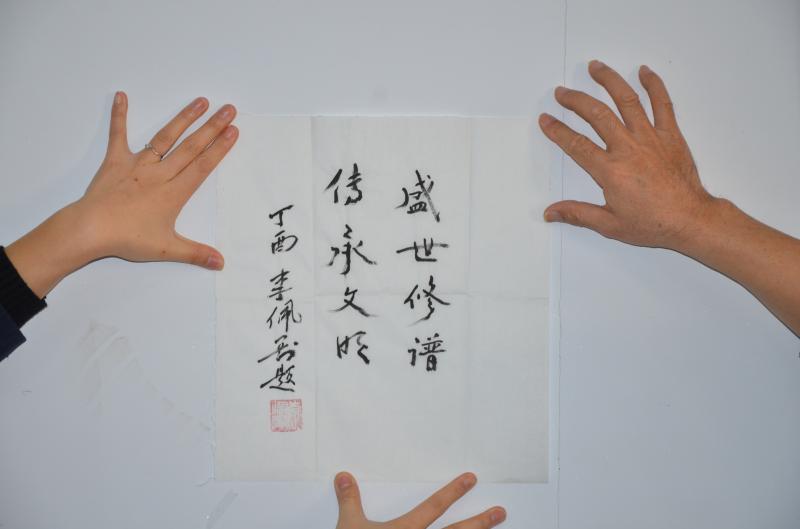 盛世修谱
传承文明
丁酉 李佩 题